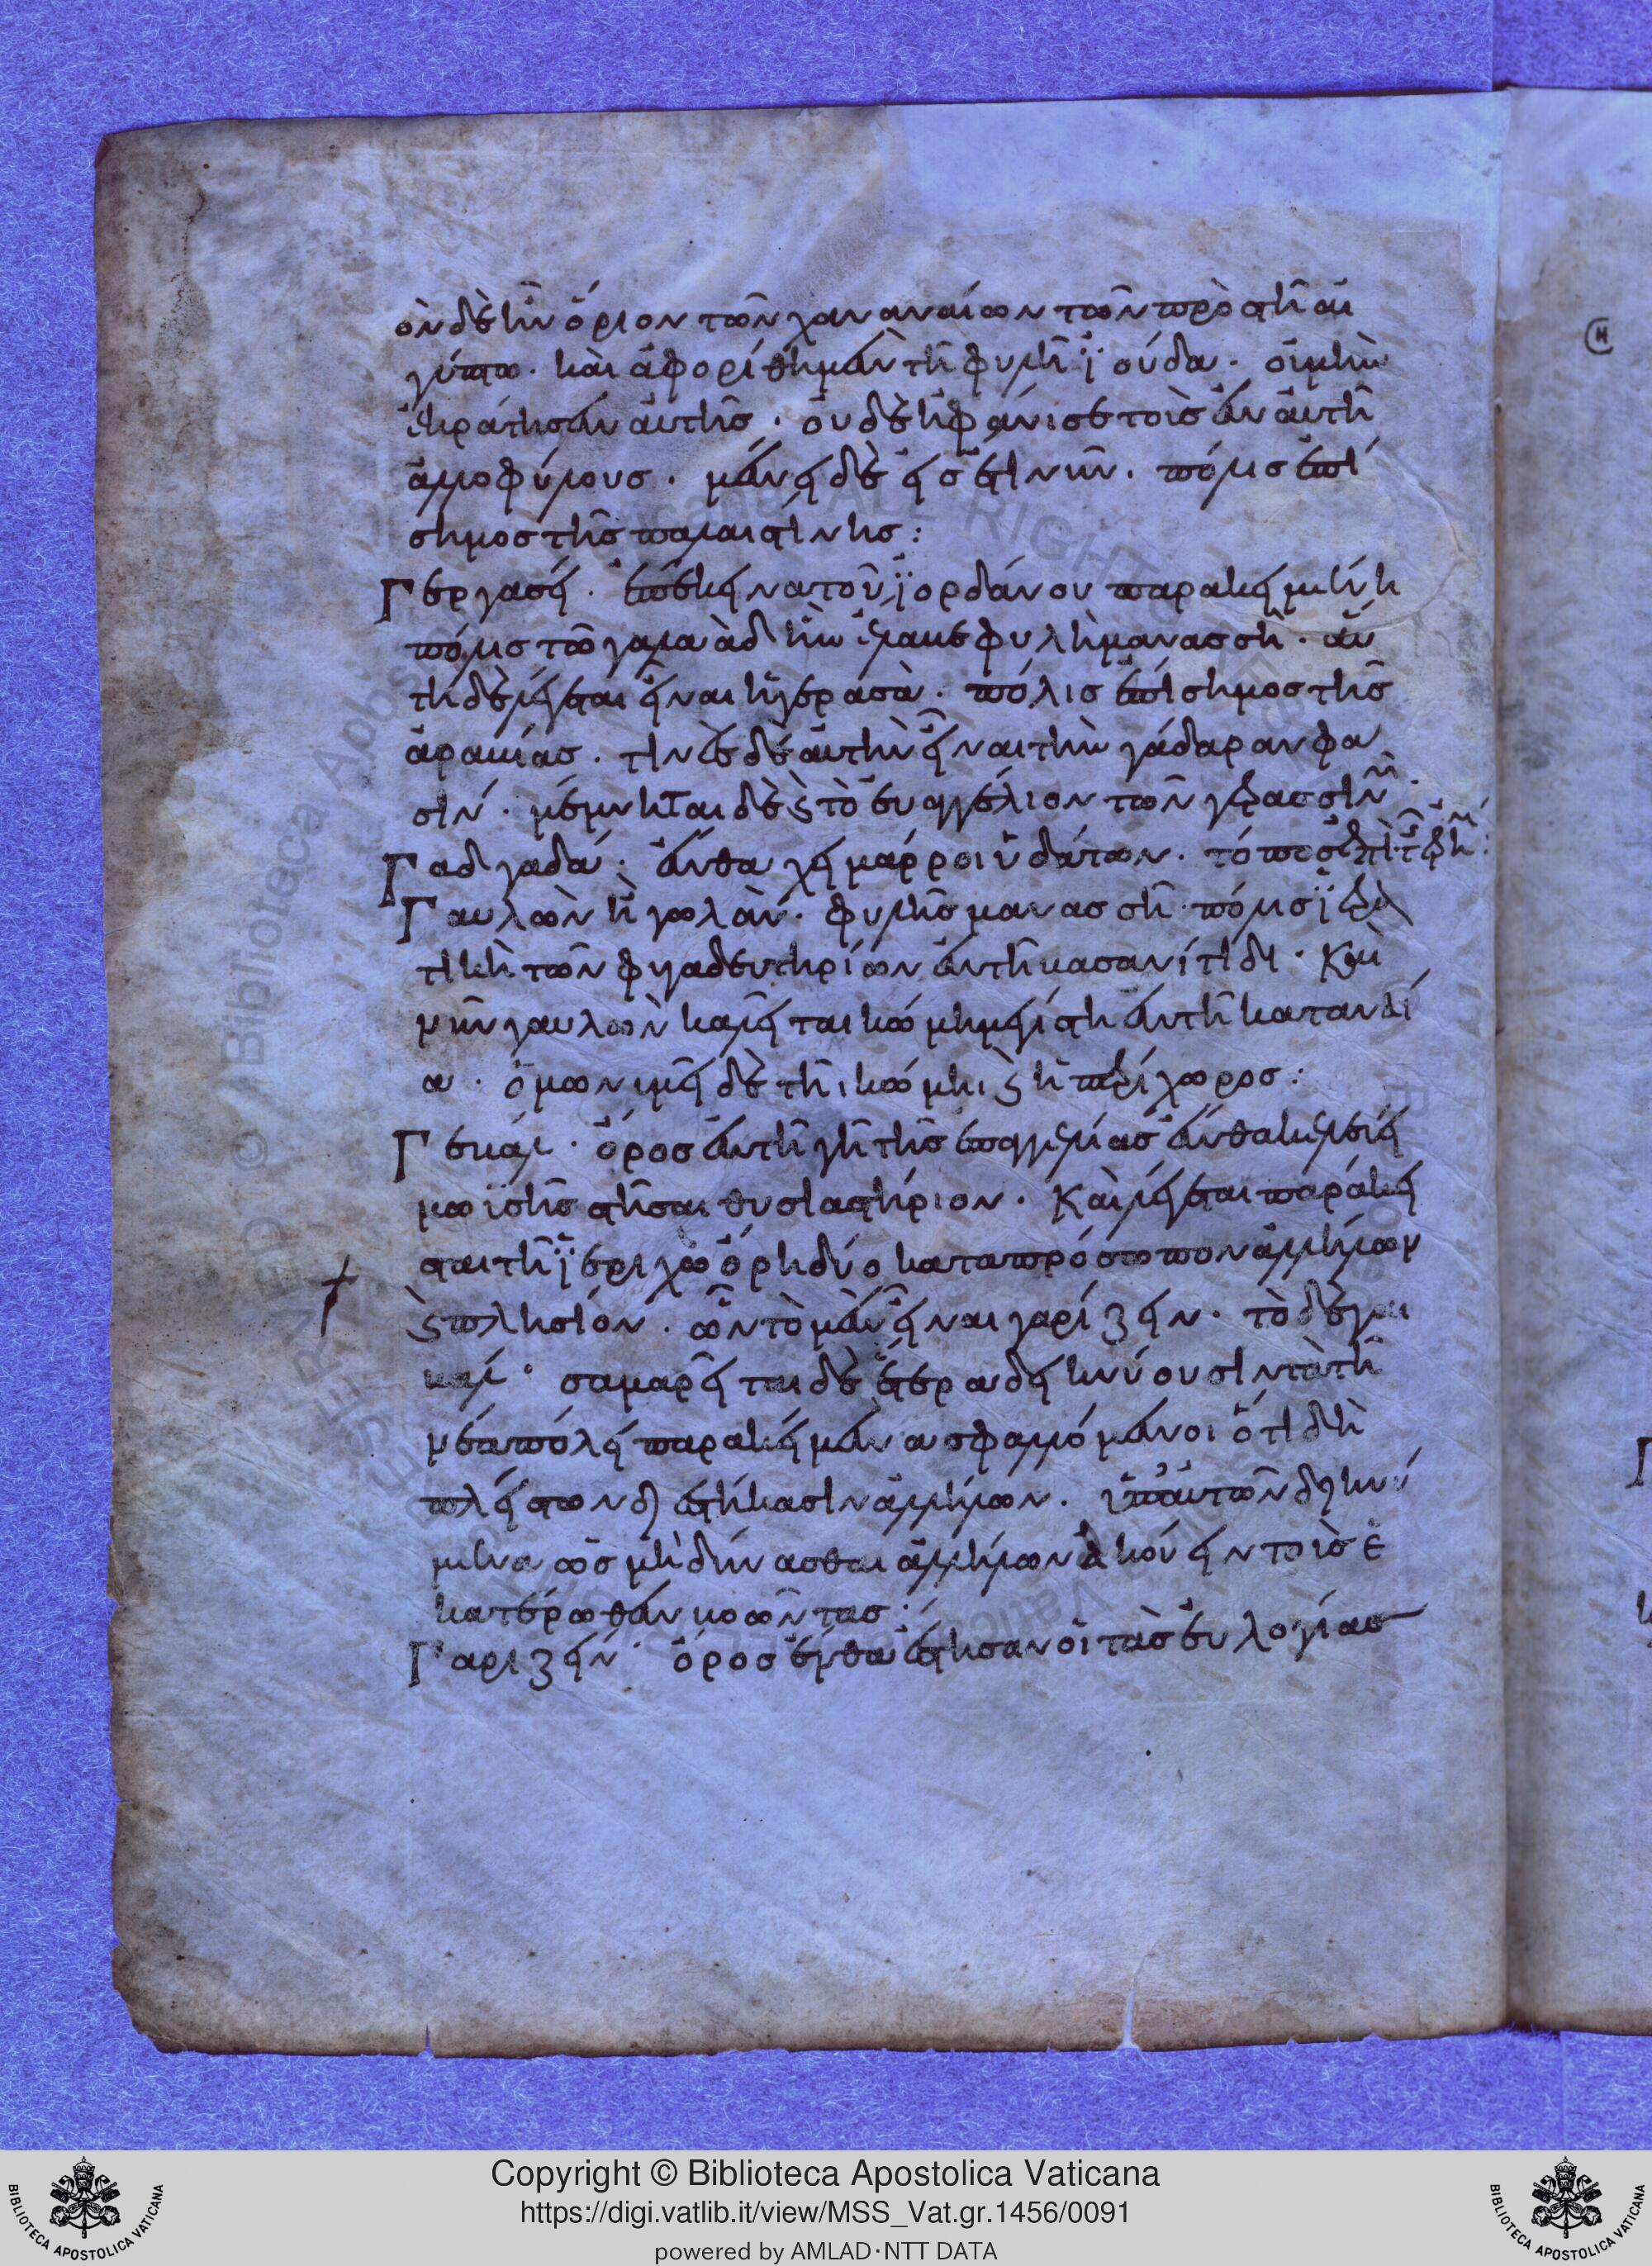 ὃν δὲ ἦν ὅριον τῶν χαναναίων τῶν πρὸς τῆ αἰ
γύπτω. καὶ ἀφορίσθη μὲν τῆ φυλῆ ϊούδα. οὐ μὴν
ἐκράτησεν αὐτῆς. οὐδὲ ἠφάνισε τοὺς ἐν αὐτῆ
ἀλλοφύλους. μένει δὲ εἰσέτι νῦν. πόλις ἐπί
σημος τῆς παλαιστίνης:
Γεργασεί. ἐπέκεινα τοῦ ϊορδάνου παρακειμένη
πόλις τῶ γαλαὰδ ἣν ἔλαβε φυλὴ μανασσῆ. αὕ
τη δὲ λέγεται εἶναι ἡ γερασὰ. πόλις ἐπίσημος τῆς
ἀραβίας. τινὲς δὲ αὐτὴν εἶναι τὴν γάδαραν φα
σίν. μέμνηται δὲ ϛ τὸ εὐαγγέλιον τῶν γεργασσινῶν.
Γαδγαδά. ἔνθα χείμαρροι ὑδάτων. τόπος ἐπὶ τῆς ἐρήμου:
Γαυλὼν ἢ γωλὰν. φυλῆς μανασσῆ πόλις ϊερα
τικὴ τῶν φυγαδευτηρίων ἐν τῆ βασανίτιδι. Καὶ
νῦν γαυλὼν καλεῖται κώμη μεγίστη ἐν τῆ βατανέ
α. ὁμωνυμεῖ δὲ τῆι κώμηι ϛ ἡ περίχωρος:
Γεβάλ. ὄρος ἐν τῆ γῆ τῆς ἐπαγγελίας ἔνθα κελεύει
μωϊσῆς στῆσαι θυσιαστήριον. Καὶ λέγεται παράκει
σται τῆ ϊεριχὼ ὄρη δύο κατα πρόσωπον ἀλλήλων
ϛ πλησίον. ὧν τὸ μὲν εἶναι γαρίζειν. τὸ δὲ γαι
βαλ. σαμαρεῖται δὲ ἕτερα δεικνύουσιν τὰ τῆ
νέα πόλει παρακείμενα σφαλλόμενοι ὅτι δὴ
πλείστον διεστήκασιν ἀλλήλων. ὑπ' αὐτῶν δεικνύ
μενα ὡς μὴ δύνασθαι ἀλλήλων ἀκούειν τοὺς ἑ
κατέρωθεν βοῶντας:
Γαριζείν ὄρος ἔνθα ἔστησαν οἱ τὰς εὐλογίας
Copyright © Biblioteca Apostolica Vaticana
https://digi.vatlib.it/view/MSS_Vat.gr.1456/0091
powered by AMLAD·NTT DATA
BIBLIOTECA APOSTOLICA VATICANA
BIBLIOTECA APOSTOLICA VATICANA